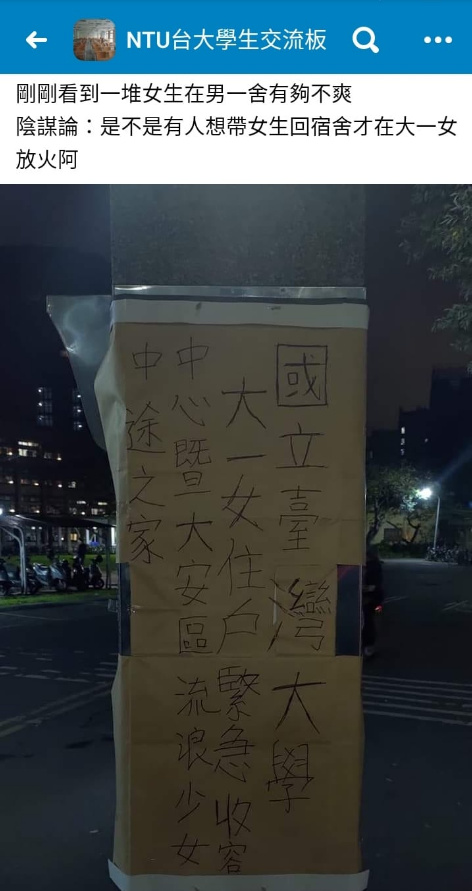 NTU台大學生交流板
剛剛看到一堆女生在男一舍有夠不爽
陰謀論：是不是有人想帶女生回宿舍才在大一女
放火阿
國立臺灣大學
大一女住戶緊急收容
中心暨大安區流浪少女
中途之家